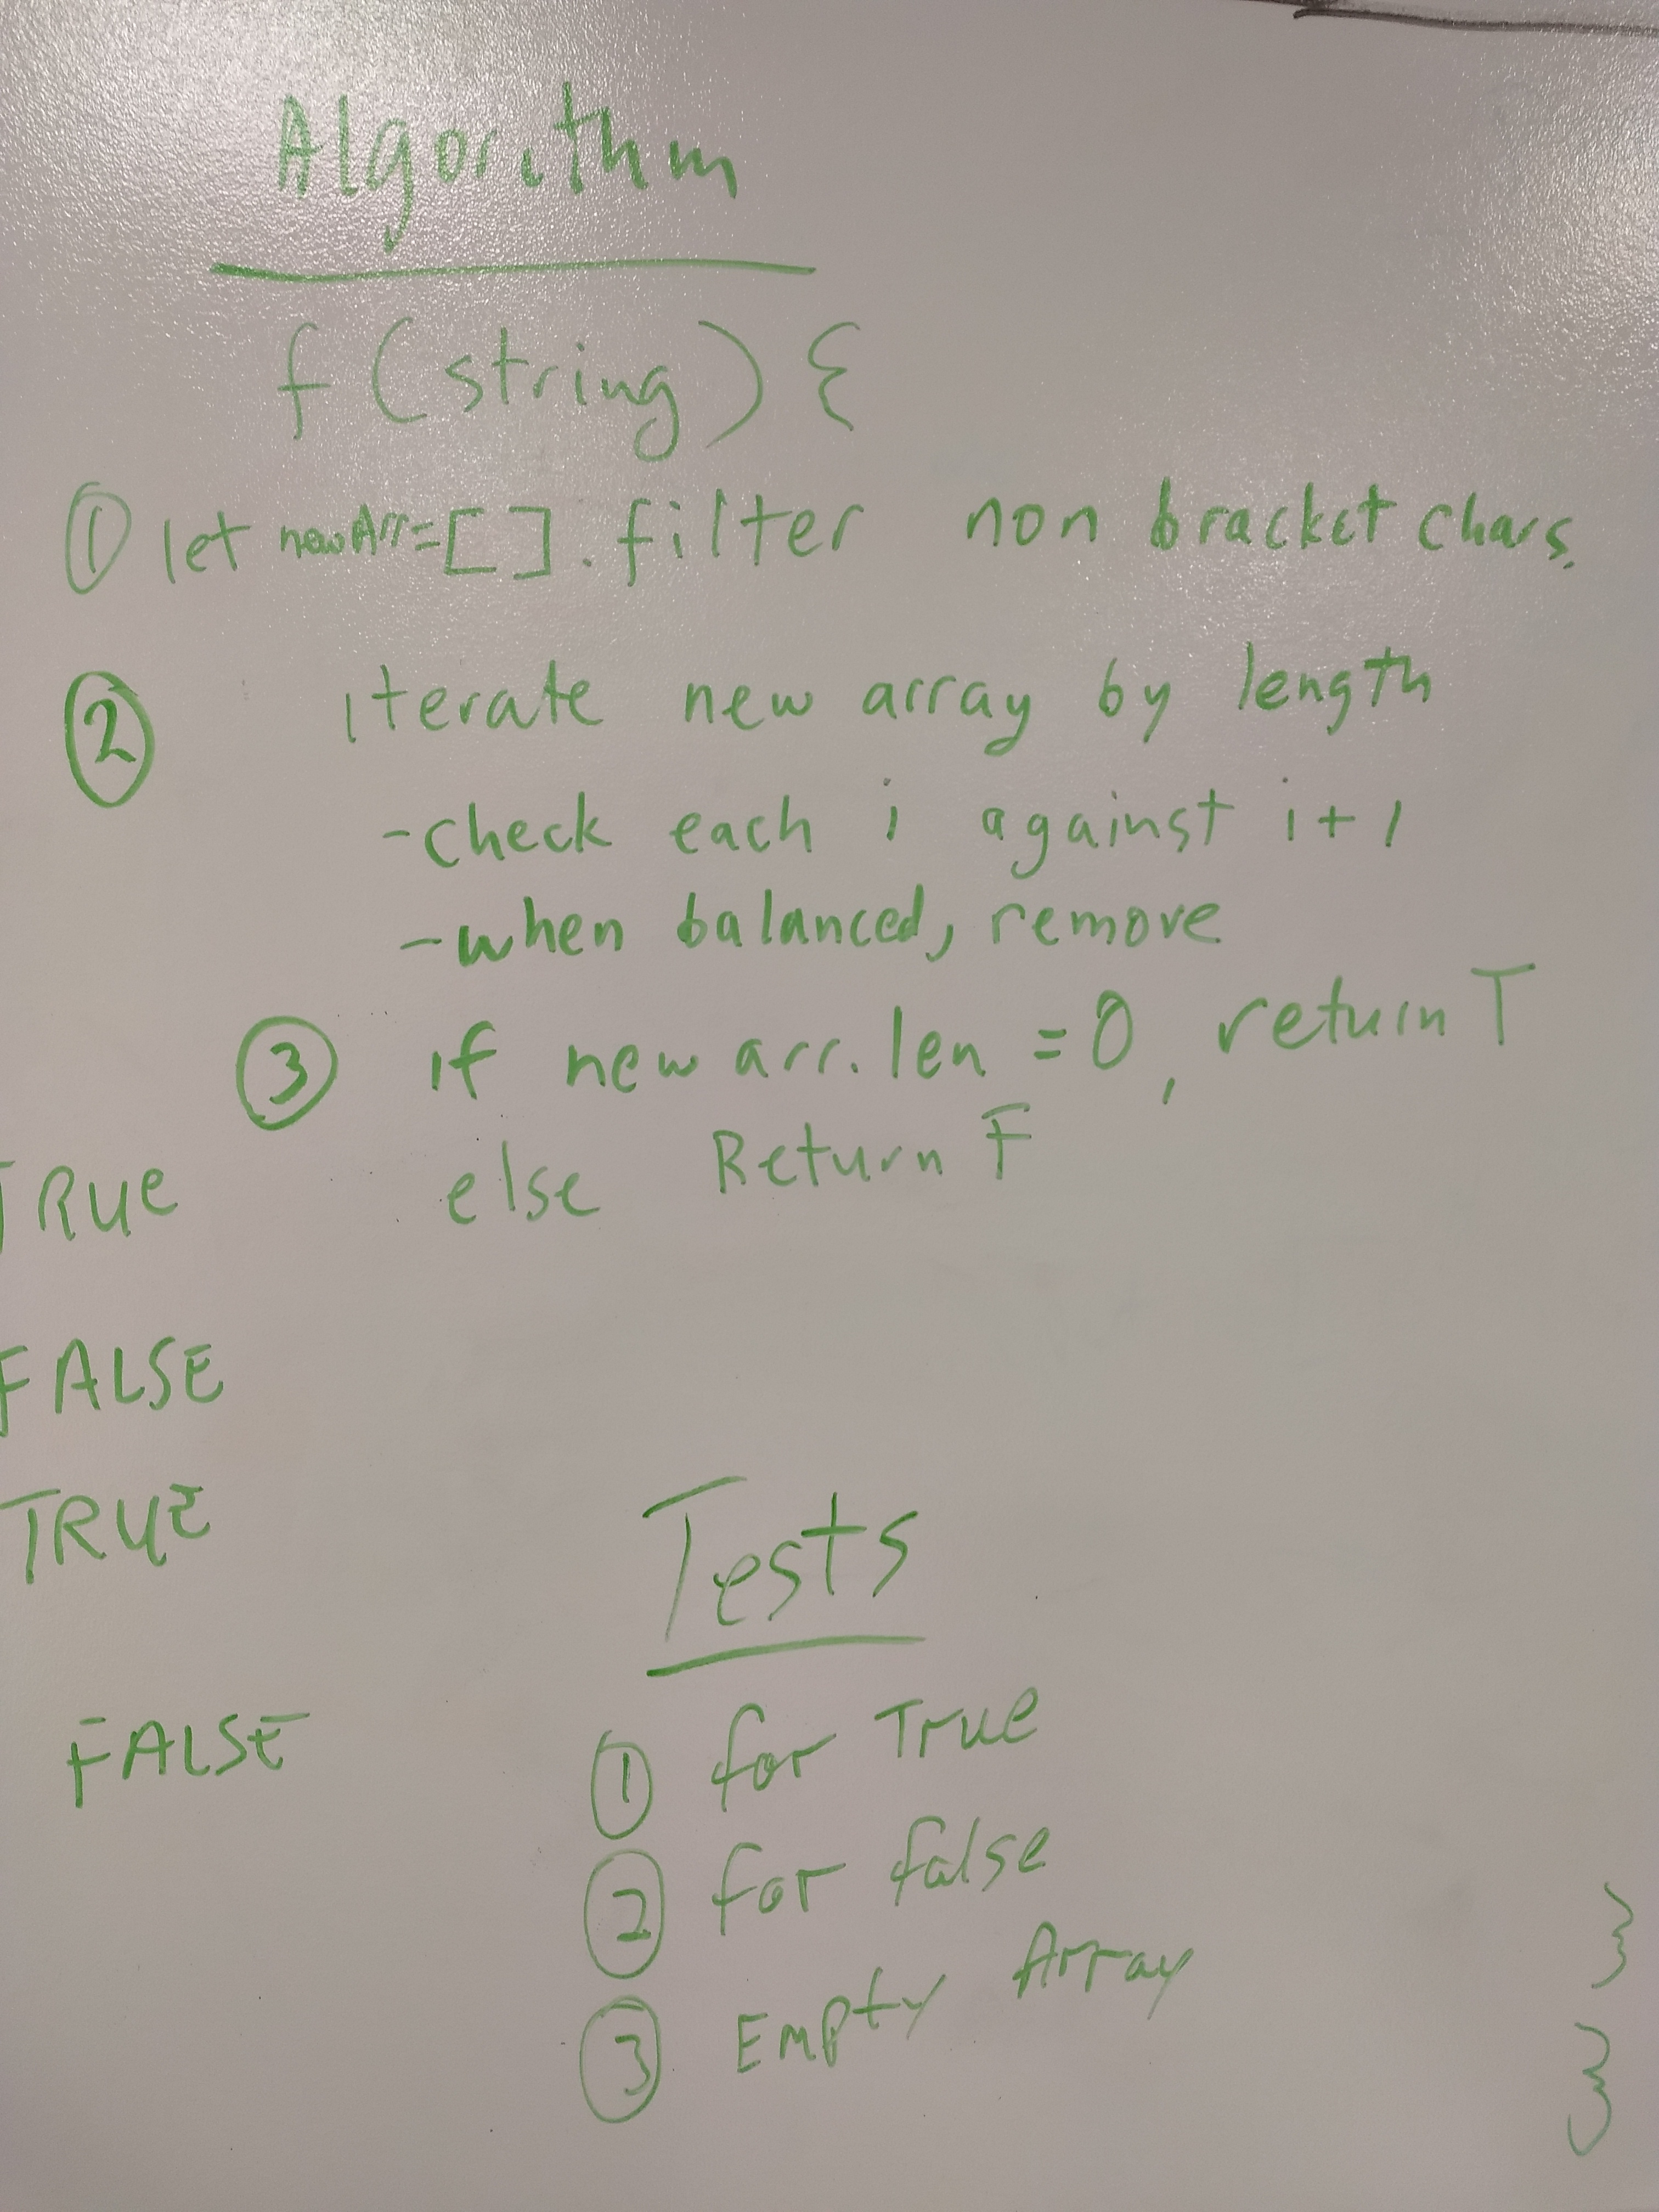 Algorithm
f(string){
① let newArr=[].filter non bracket chars.
② iterate new array by length
-check each i against i+1
-when balanced, remove
③ if new arr.len =0, return T
else Return F
TRUe
FALSE
TRUE
FALSE
Tests
① for True
② for false
③ Empty Array
}
}